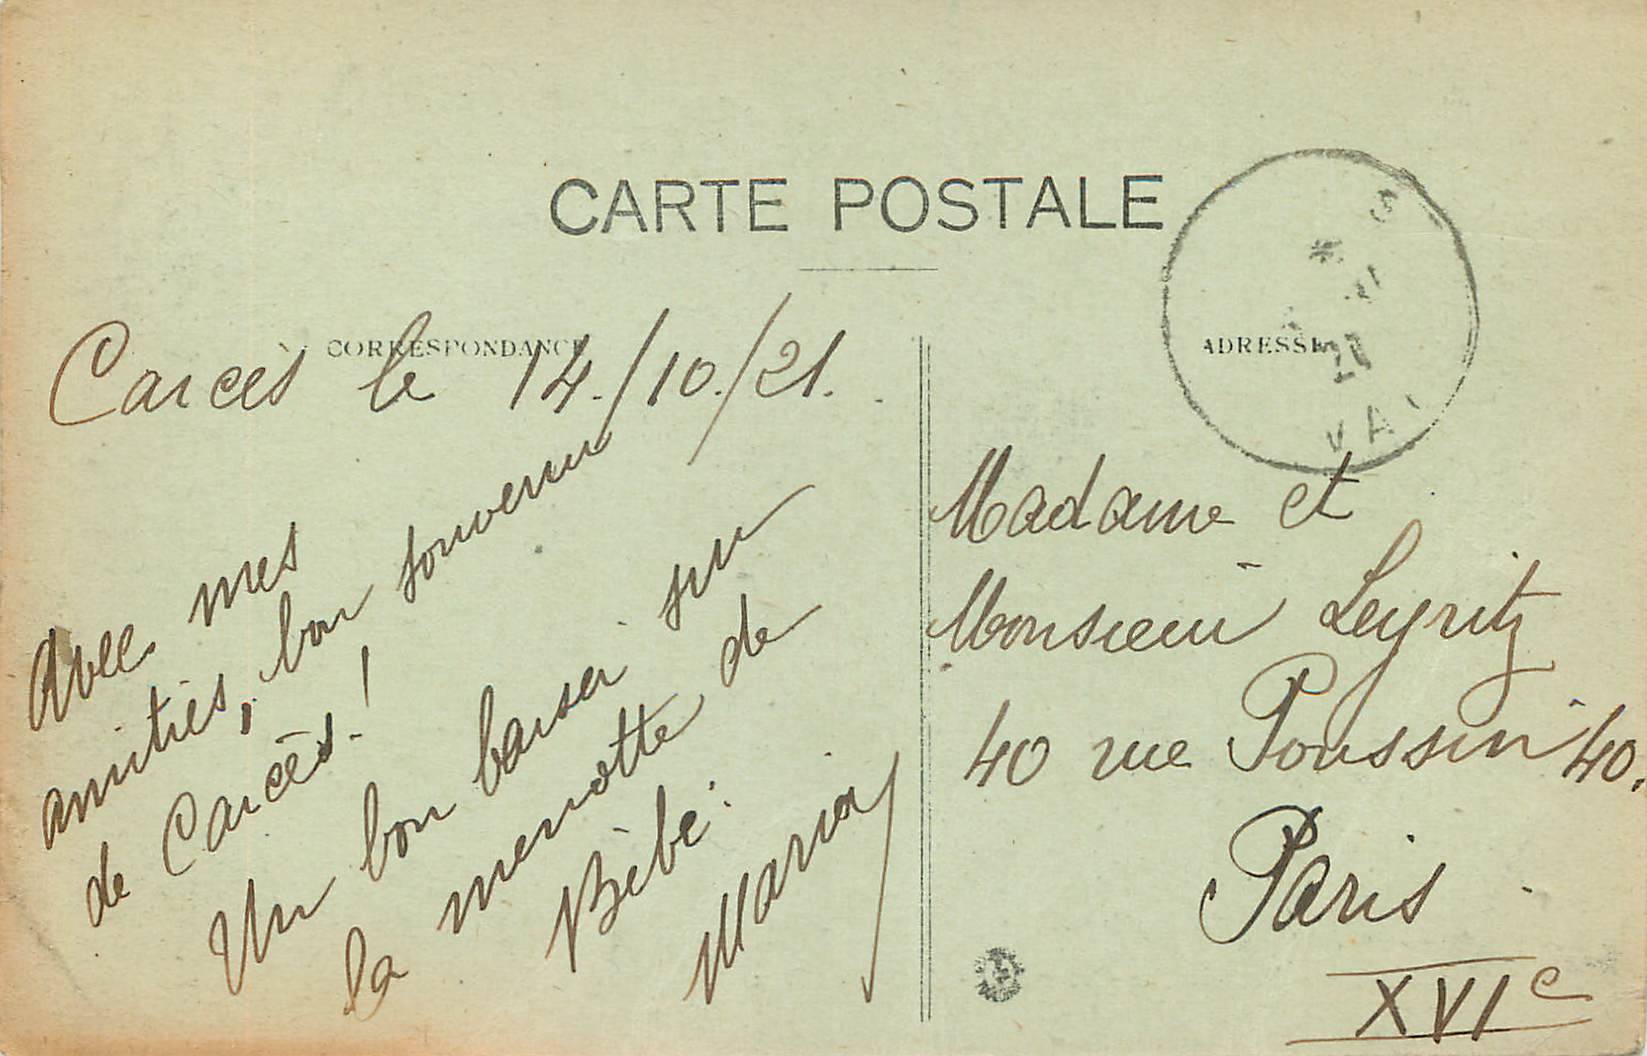 CARTE POSTALE
CORRESPONDANCE
ADRESSE
VAR
Carcès le 14./10./21.
Avec mes
amitiés, bon souvenir
de Carcès.!
Un bon baiser sur
la menotte de
Bébé.
Maria
Madame et
Monsieur Leyritz
40 rue Poussin 40.
Paris
XVIe